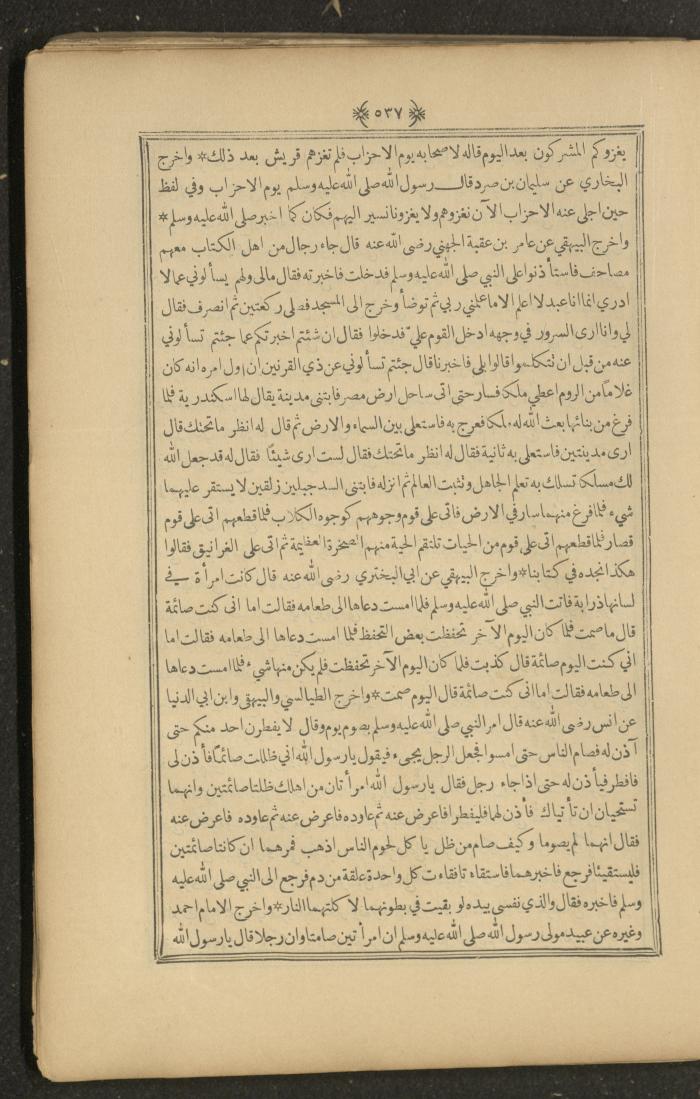 ٥٣٧
يغزوكم المشركون بعد اليوم قاله لاصحابه يوم الاحزاب فلم تغزهم قريش بعد ذلك * واخرج
البخاري عن سليمان بن صرد قال رسول الله صلى الله عليه وسلم يوم الاحزاب وفي لفظ
حين اجلى عنه الاحزاب الآن نغزوهم ولا يغزونا نسير اليهم فكان كما اخبر صلى الله عليه وسلم *
واخرج البيهقي عن عامر بن عقبة الجهني رضى الله عنه قال جاء رجال من اهل الكتاب معهم
مصاحف فاستأذنوا على النبي صلى الله عليه وسلم فدخلت فاخبرته فقال مالى ولهم يسألوني عما لا
ادري انما انا عبد لا اعلم الا ما علمني ربي ثم توضأ وخرج الى المسجد فصلى ركعتين ثم انصرف فقال
لي وانا ارى السرور في وجهه ادخل القوم عليّ فدخلوا فقال ان شئتم اخبرتكم عما جئتم تسألوني
عنه من قبل ان تتكلموا قالوا بلى فاخبرنا قال جئتم تسألوني عن ذي القرنين ان اول امره انه كان
غلاما من الروم اعطي ملكا فسار حتى اتى ساحل ارض مصر فابتنى مدينة يقال لها اسكندرية فلما
فرغ من بنائها بعث الله له ملكا فعرج به فاستعلى بين السماء والارض ثم قال له انظر ما تحتك قال
ارى مدينتين فاستعلى به ثانية فقال له انظر ما تحتك فقال لست ارى شيئا فقال له قد جعل الله
لك مسلكا تسلك به تعلم الجاهل وتثبت العالم ثم انزله فابتنى السد جبلين زلقين لا يستقر عليهما
شيء فلما فرغ منهما سار في الارض فاتى على قوم وجوههم كوجوه الكلاب فلما قطعهم اتى على قوم
قصار فلما قطعهم اتى على قوم من الحيات تلتقم الحية منهم الصخرة العظيمة ثم اتى على الغرانيق فقالوا
هكذا نجده في كتابنا * واخرج البيهقي عن ابي البختري رضى الله عنه قال كانت امرأة في
لسانها ذرابة فاتت النبي صلى الله عليه وسلم فلما امست دعاها الى طعامه فقالت اما انى كنت صائمة
قال ما صمت فلما كان اليوم الآخر تحفظت بعض التحفظ فلما امست دعاها الى طعامه فقالت اما
اني كنت اليوم صائمة قال كذبت فلما كان اليوم الآخر تحفظت فلم يكن منها شيء فلما امست دعاها
الى طعامه فقالت اما انى كنت صائمة قال اليوم صمت * واخرج الطيالسي والبيهقي وابن ابي الدنيا
عن انس رضى الله عنه قال امر النبي صلى الله عليه وسلم بصوم يوم وقال لا يفطرن احد منكم حتى
آذن له فصام الناس حتى امسوا فجعل الرجل يجيء فيقول يارسول الله اني ظللت صائما فأذن لى
فافطر فيأذن له حتى اذا جاء رجل فقال يارسول الله امرأتان من اهلك ظلتا صائمتين وانهما
تستحيان ان تأتياك فأذن لهما فليفطرا فاعرض عنه ثم عاوده فاعرض عنه ثم عاوده فاعرض عنه
فقال انهما لم يصوما وكيف صام من ظل يا كل لحوم الناس اذهب فمرهما ان كانتا صائمتين
فليستقيئا فرجع فاخبرهما فاستقاءتا فقاءت كل واحدة علقة من دم فرجع الى النبي صلى الله عليه
وسلم فاخبره فقال والذي نفسى بيده لو بقيت في بطونهما لاكلتهما النار * واخرج الامام احمد
وغيره عن عبيد مولى رسول الله صلى الله عليه وسلم ان امرأتين صامتا وان رجلا قال يارسول الله